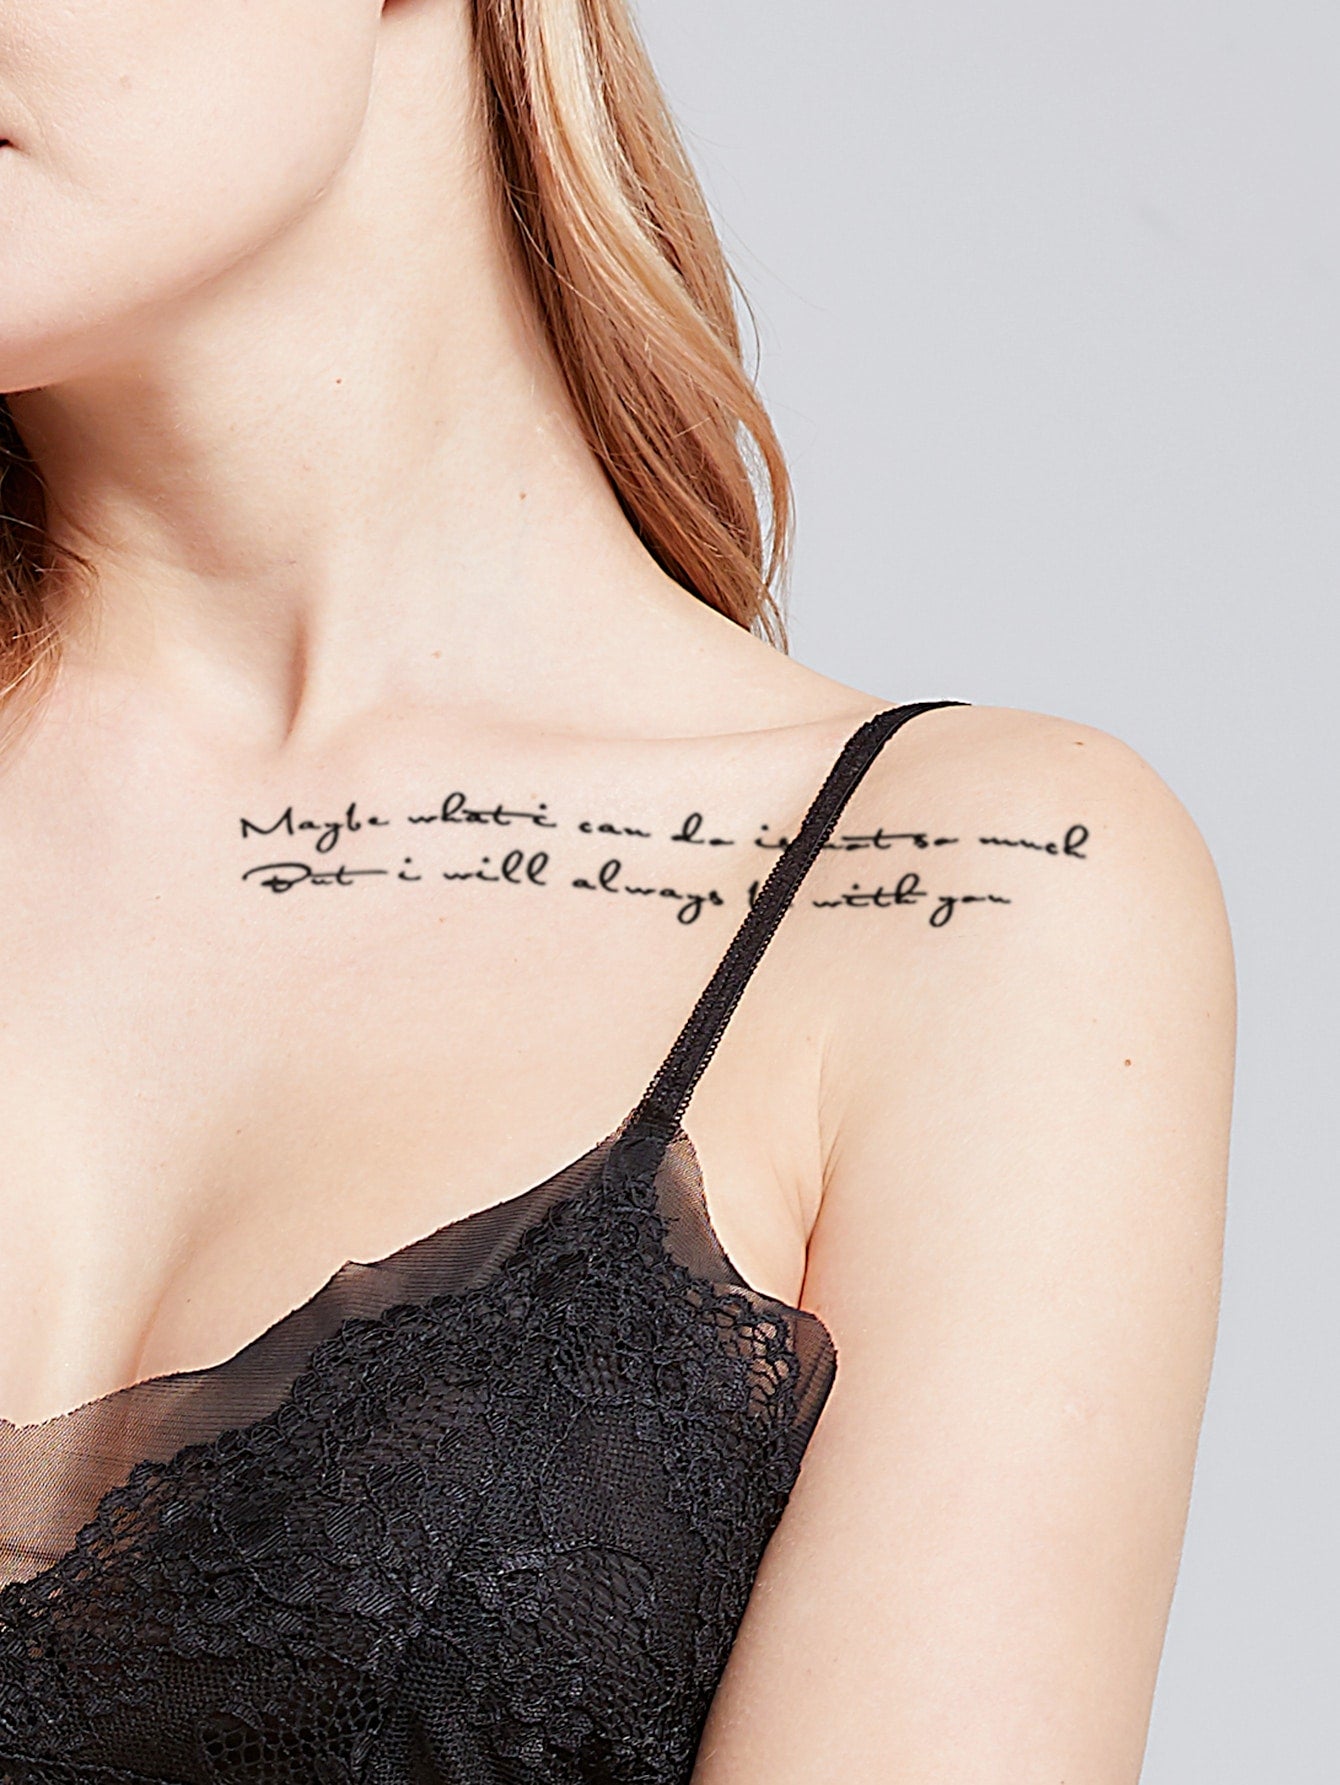 Maybe what i can do is not so much
But i will always be with you